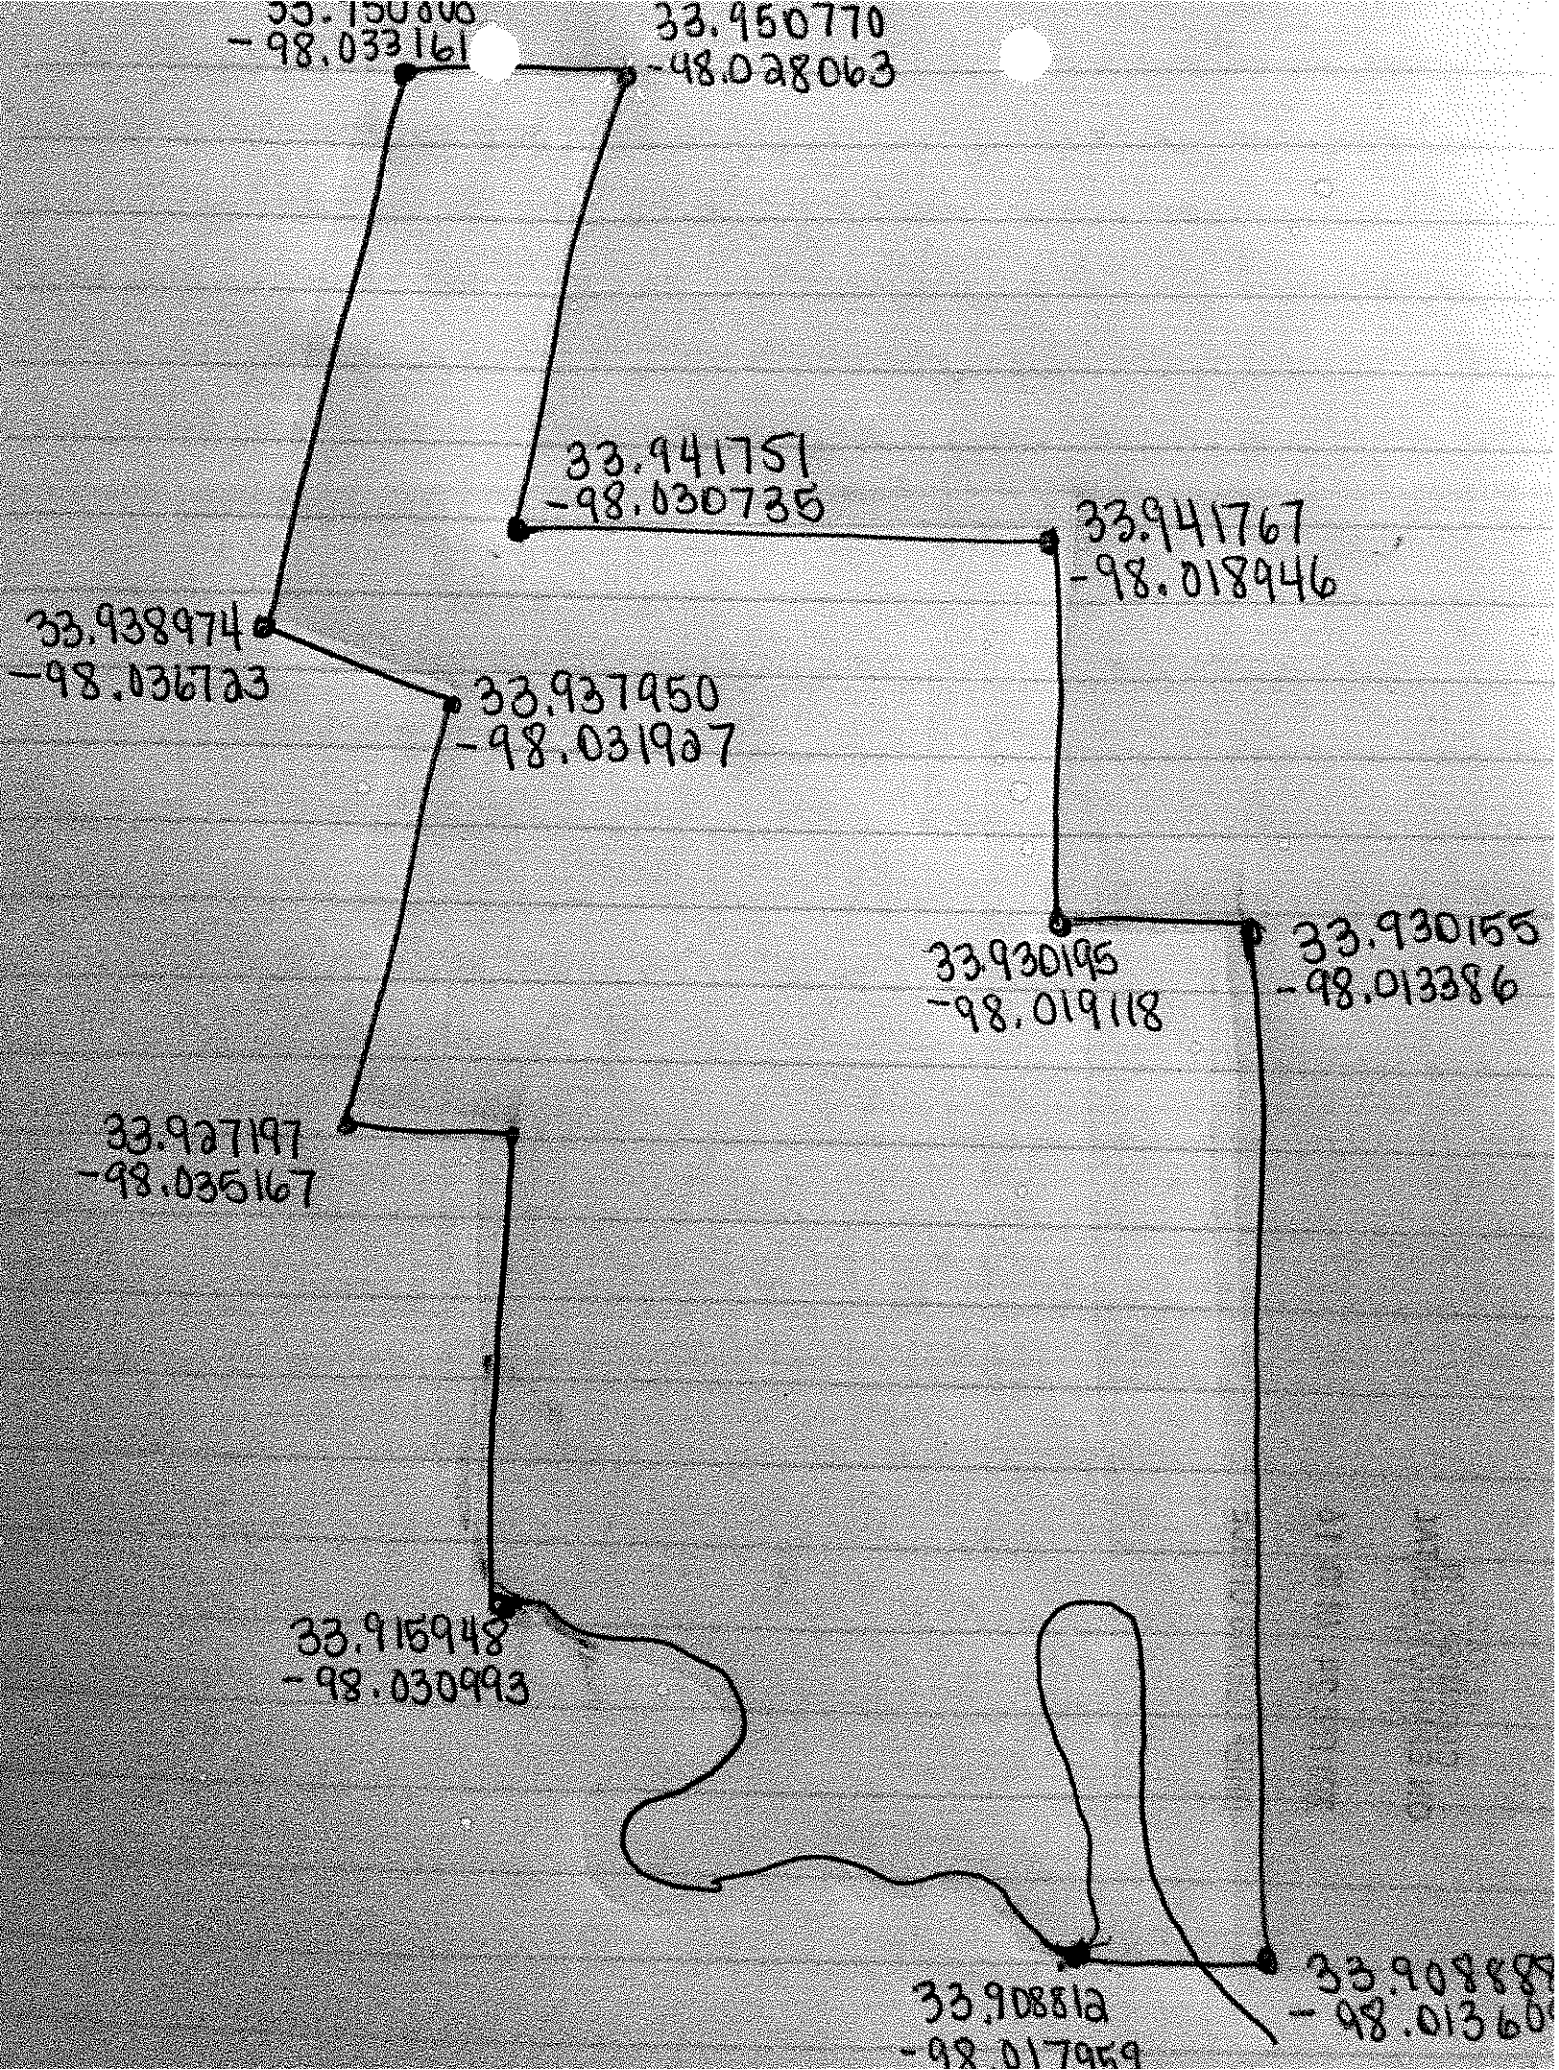 -98.033161
33.950770
-98.028063
33.941751
-98.030735
33.941767
-98.018946
33.938974
-98.036723
33.937950
-98.031927
33.930195
-98.019118
33.930155
-98.013386
33.927197
-98.035167
33.915948
-98.030993
33.908812
-98.017959
33.908888
-98.01360